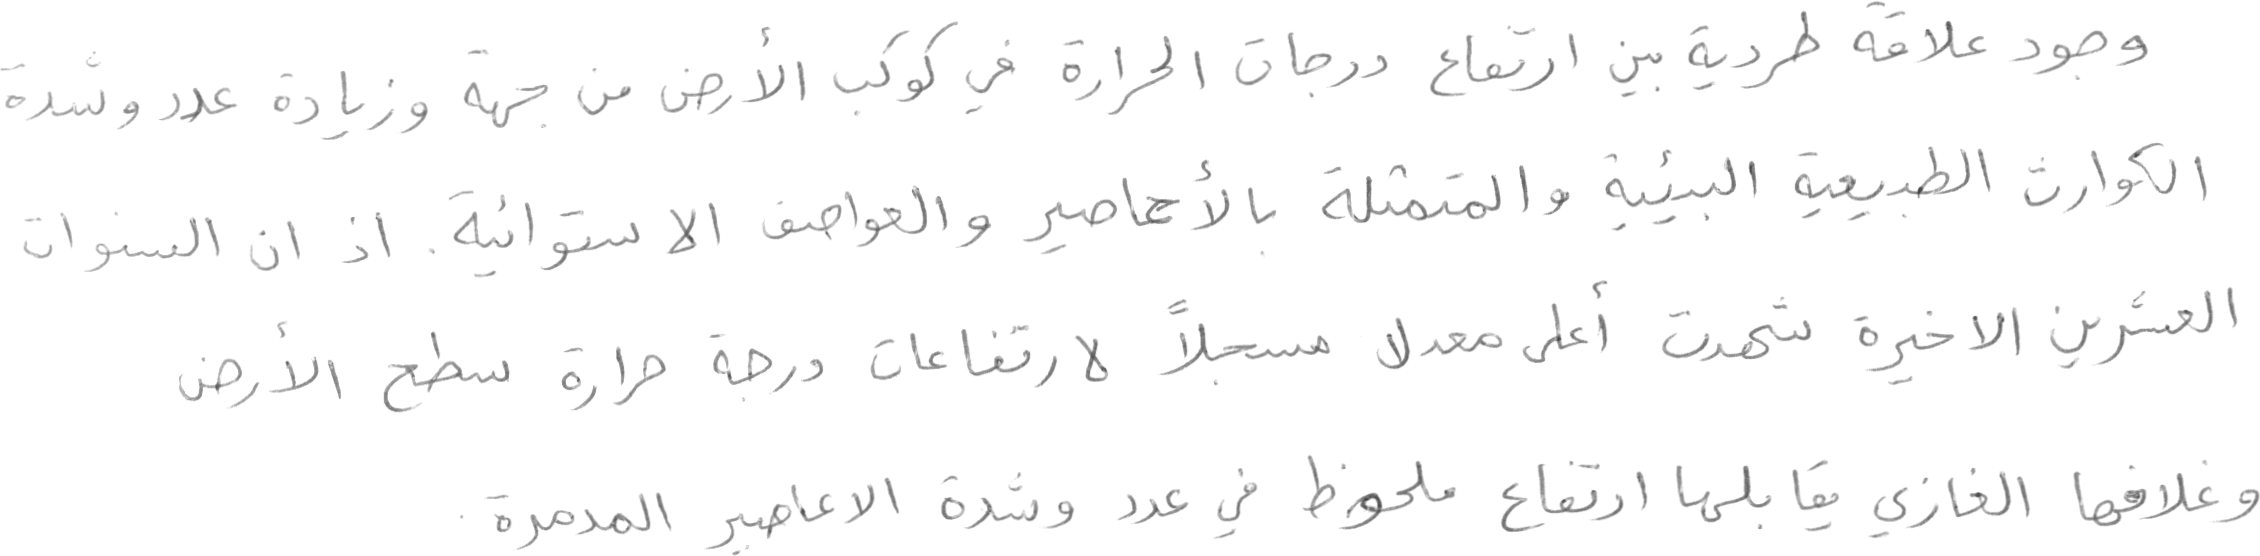 وجود علاقة طردية بين ارتفاع درجات الحرارة في كوكب الأرض من جهة وزيادة عدد وشدة
الكوارث الطبيعية البيئية والمتمثلة بالأعاصير والعواصف الاستوائية. اذ ان السنوات
العشرين الاخيرة شهدت أعلى معدل مسجلاً لارتفاعات درجة حرارة سطح الأرض
وغلافها الغازي يقابلها ارتفاع ملحوظ في عدد وشدة الاعاصير المدمرة.